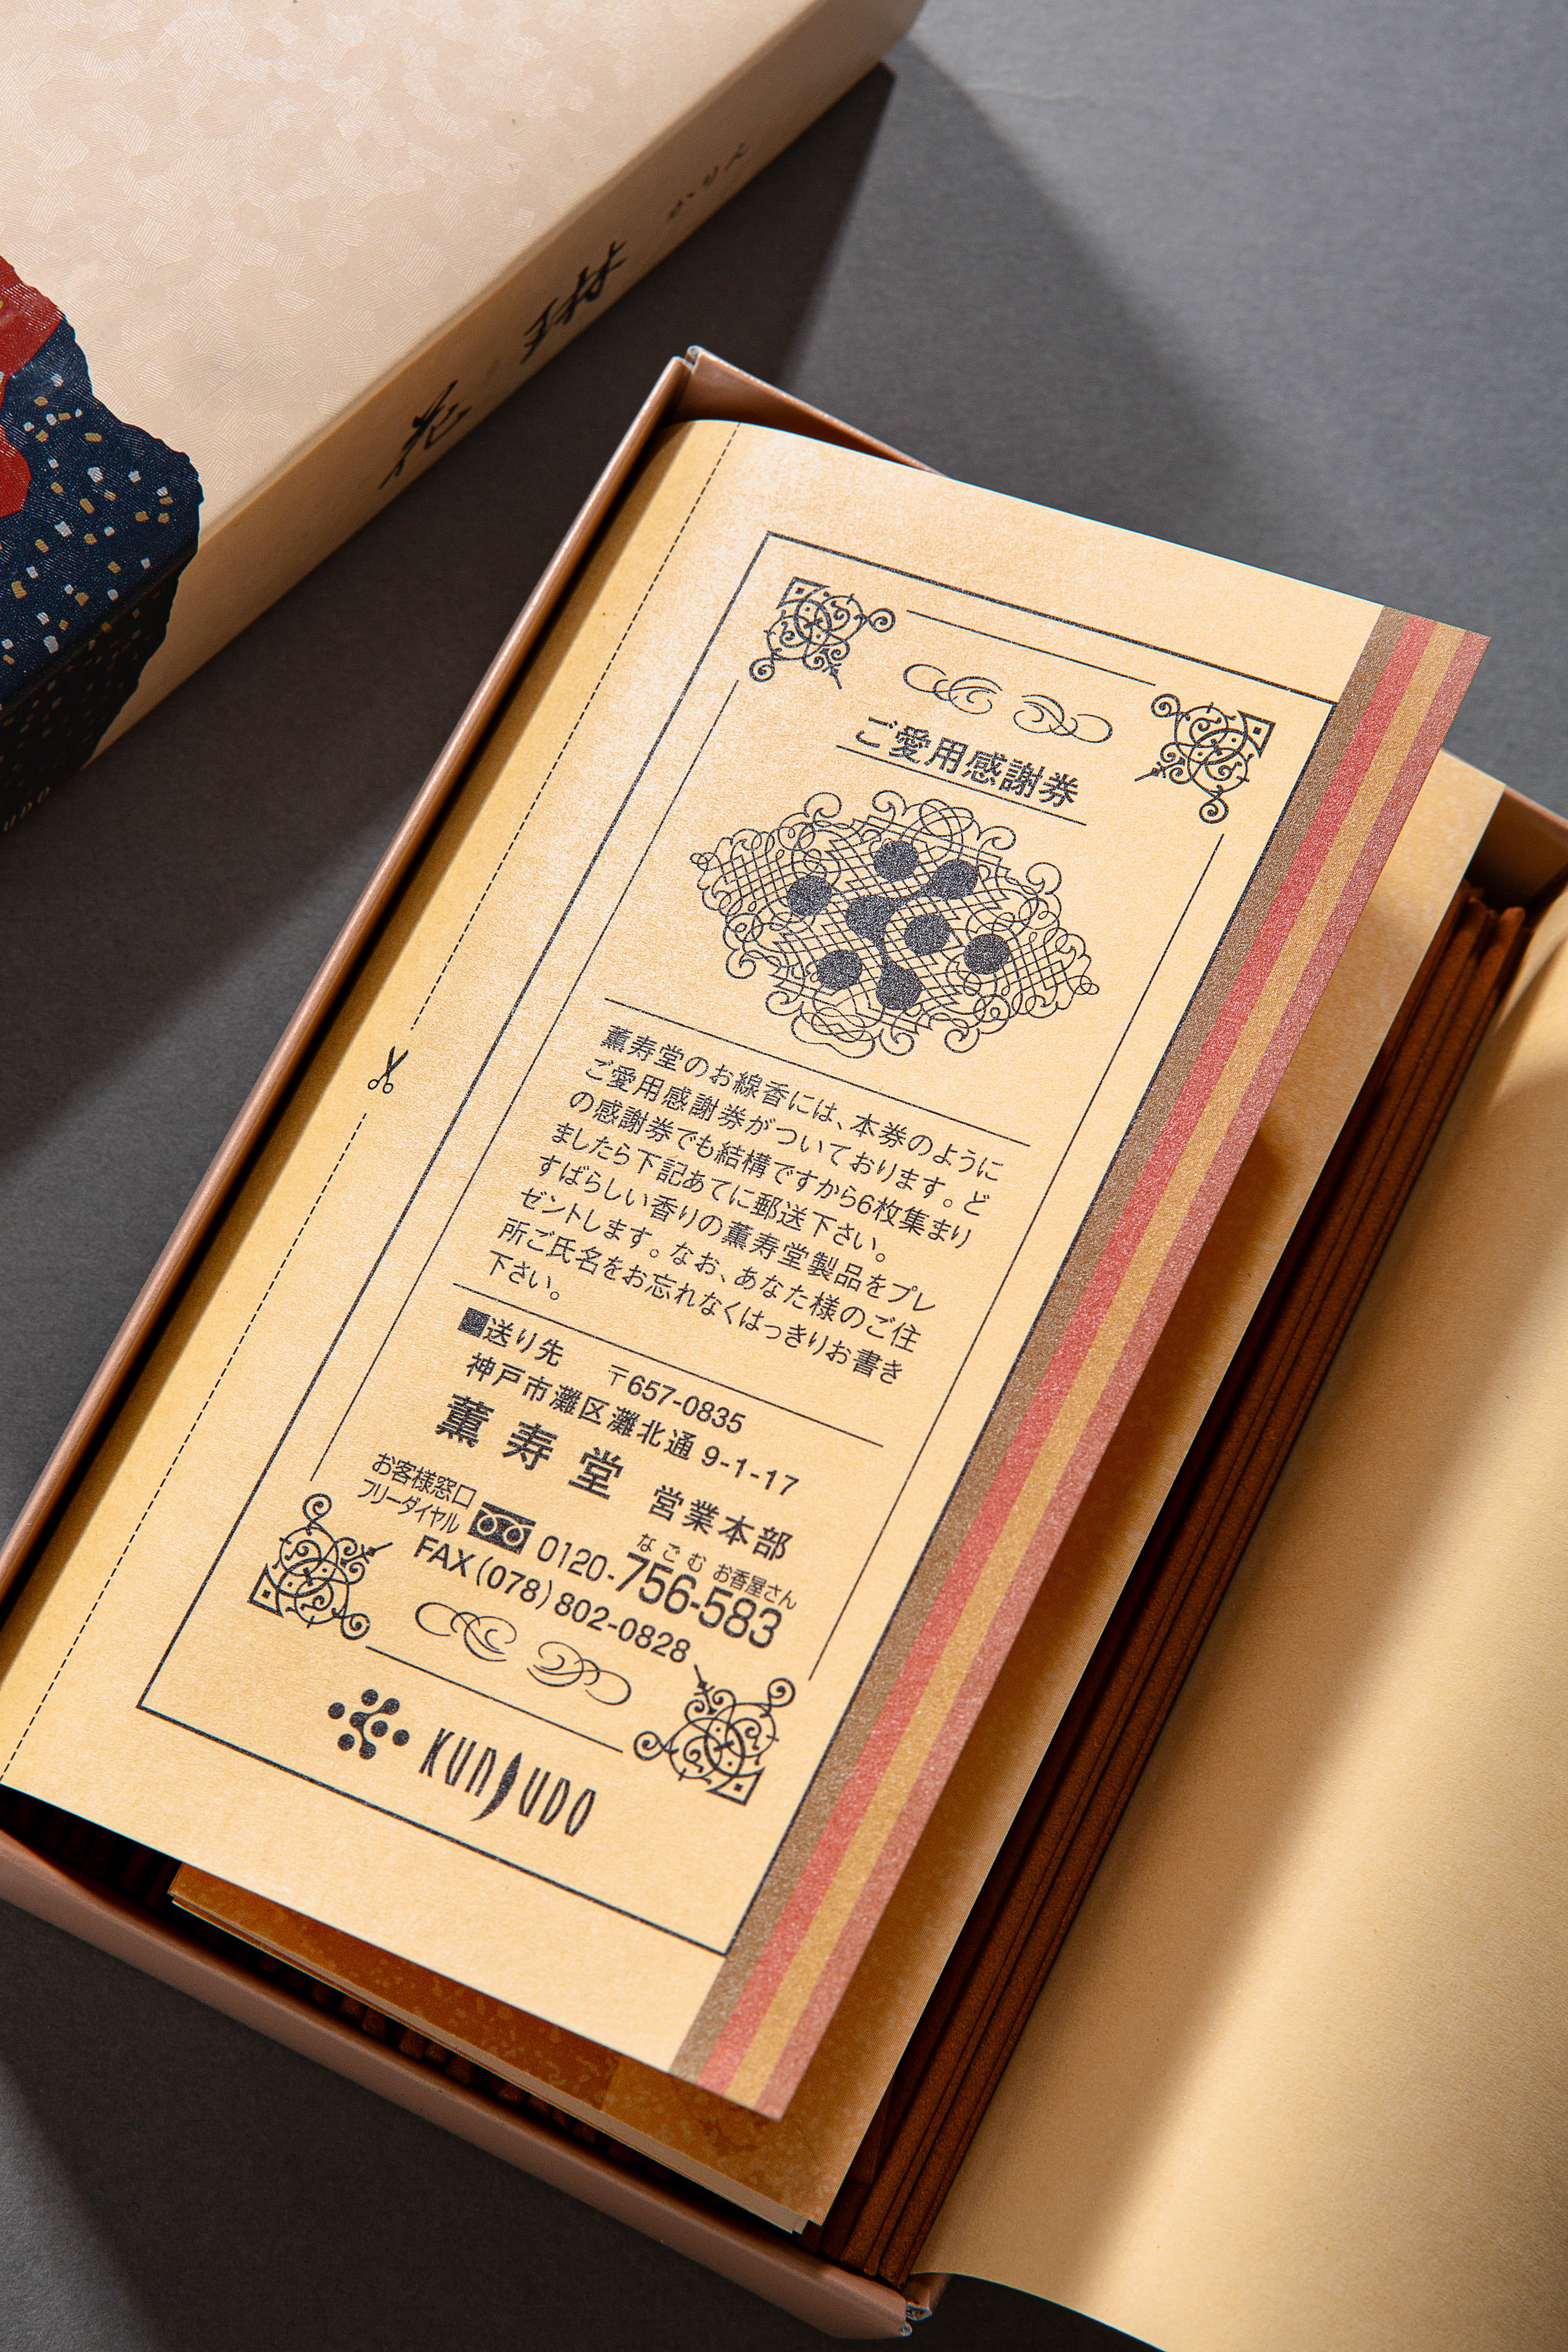 花琳 かりん
UDO
ご愛用感謝券
薫寿堂のお線香には、本券のように
ご愛用感謝券がついております。ど
の感謝券でも結構ですから6枚集まり
ましたら下記あてに郵送下さい。
すばらしい香りの薫寿堂製品をプレ
ゼントします。なお、あなた様のご住
所ご氏名をお忘れなくはっきりお書き
下さい。
■送り先 〒657-0835
神戸市灘区灘北通 9-1-17
薫寿堂 営業本部
お客様窓口
フリーダイヤル
なごむ お香屋さん
0120-756-583
FAX(078)802-0828
KUNJUDO